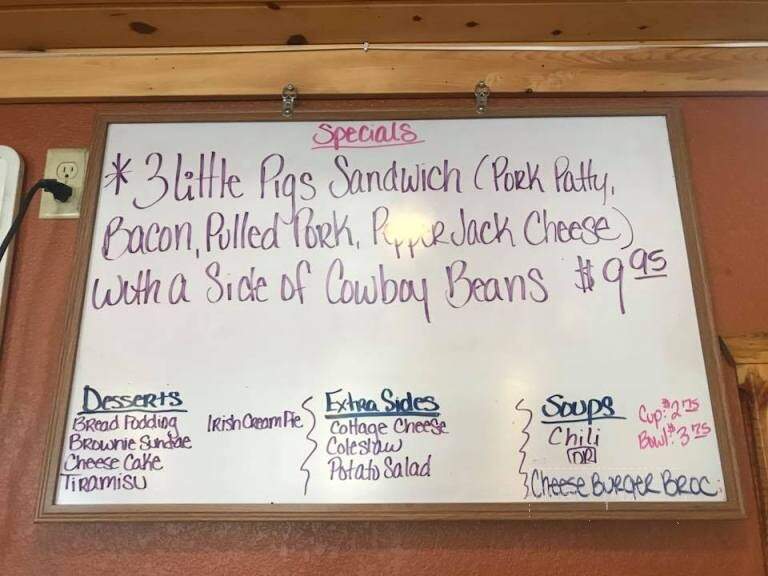 Specials
* 3 Little Pigs Sandwich (Pork Patty,
Bacon, Pulled Pork, Pepper Jack Cheese)
with a Side of Cowboy Beans $9.95
Desserts
Bread Pudding
Irish Cream Pie
Brownie Sundae
Cheese Cake
Tiramisu
Extra Sides
Cottage Cheese
Coleslaw
Potato Salad
Soups
Cup: $2.75
Bowl: $3.75
Chili
OR
Cheese Burger Broc